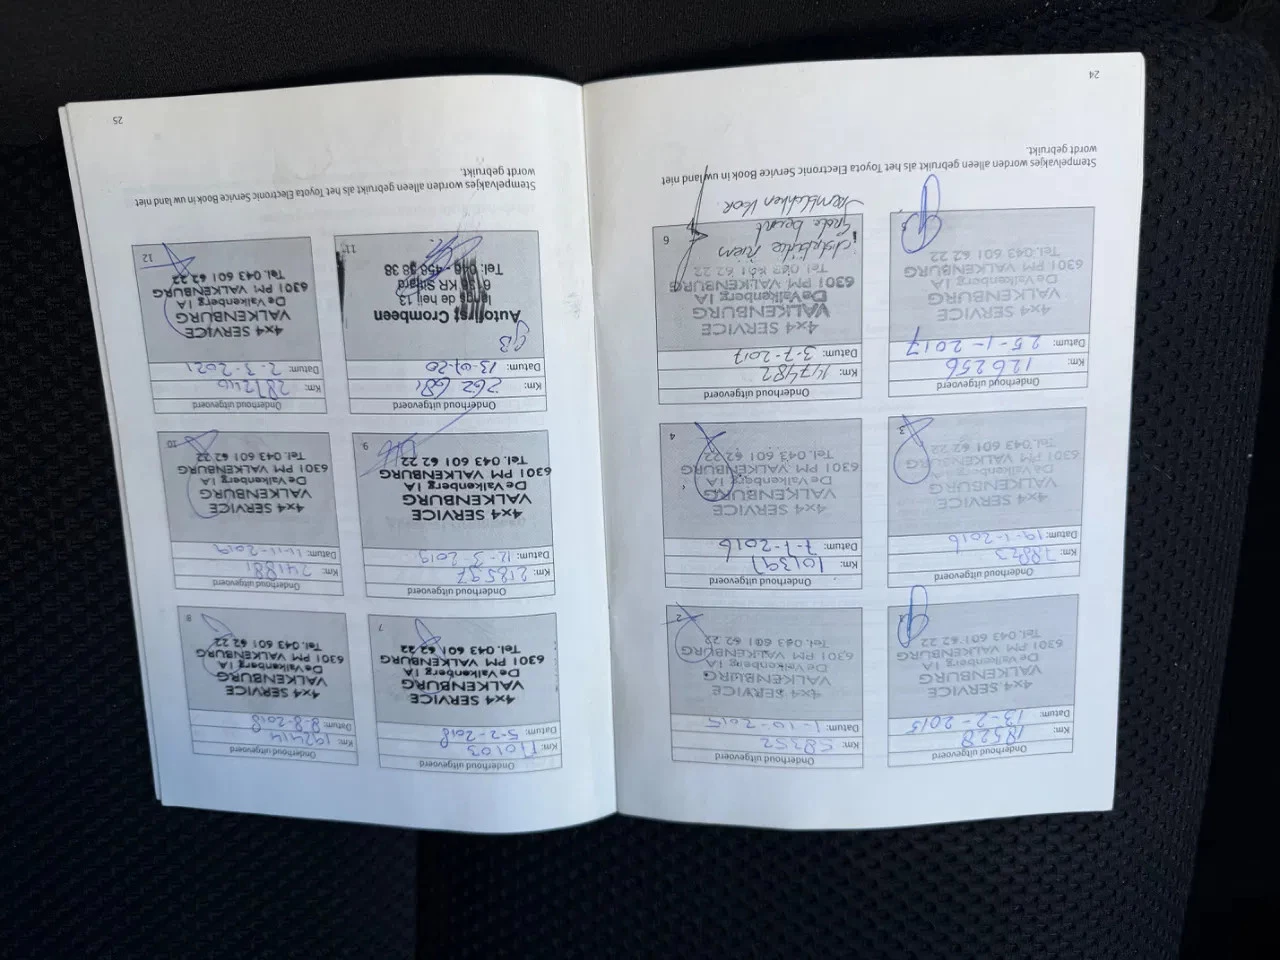 Onderhoud uitgevoerd
Km: 18528
Datum: 13-2-2015
4x4 SERVICE
VALKENBURG
De Valkenberg 1A
6301 PM VALKENBURG
Tel. 043 601 62 22
1
Onderhoud uitgevoerd
Km: 58352
Datum: 1-10-2015
4x4 SERVICE
VALKENBURG
De Valkenberg 1A
6301 PM VALKENBURG
Tel. 043 601 62 22
2
Onderhoud uitgevoerd
Km: 78843
Datum: 19-1-2016
4x4 SERVICE
VALKENBURG
De Valkenberg 1A
6301 PM VALKENBURG
Tel. 043 601 62 22
3
Onderhoud uitgevoerd
Km: 101397
Datum: 7-7-2016
4x4 SERVICE
VALKENBURG
De Valkenberg 1A
6301 PM VALKENBURG
Tel. 043 601 62 22
4
Onderhoud uitgevoerd
Km: 126256
Datum: 25-1-2017
4x4 SERVICE
VALKENBURG
De Valkenberg 1A
6301 PM VALKENBURG
Tel. 043 601 62 22
5
Onderhoud uitgevoerd
Km: 147482
Datum: 3-7-2017
4x4 SERVICE
VALKENBURG
De Valkenberg 1A
6301 PM VALKENBURG
Tel. 043 601 62 22
6
riem
beurt
remblokken voor.
Stempelvakjes worden alleen gebruikt als het Toyota Electronic Service Book in uw land niet
wordt gebruikt.
24
Onderhoud uitgevoerd
Km: 170103
Datum: 5-2-2018
4x4 SERVICE
VALKENBURG
De Valkenberg 1A
6301 PM VALKENBURG
Tel. 043 601 62 22
7
Onderhoud uitgevoerd
Km: 192414
Datum: 8-8-2018
4x4 SERVICE
VALKENBURG
De Valkenberg 1A
6301 PM VALKENBURG
Tel. 043 601 62 22
8
Onderhoud uitgevoerd
Km: 218597
Datum: 12-3-2019
4x4 SERVICE
VALKENBURG
De Valkenberg 1A
6301 PM VALKENBURG
Tel. 043 601 62 22
9
Onderhoud uitgevoerd
Km: 241881
Datum: 11-11-2019
4x4 SERVICE
VALKENBURG
De Valkenberg 1A
6301 PM VALKENBURG
Tel. 043 601 62 22
10
Onderhoud uitgevoerd
Km: 262681
Datum: 13-07-20
GB
Autofirst Crombeen
de heij 13
KR Sittard
Tel: 046 - 458 38 38
11
Onderhoud uitgevoerd
Km: 287246
Datum: 2-3-2021
4x4 SERVICE
VALKENBURG
De Valkenberg 1A
6301 PM VALKENBURG
Tel. 043 601 62 22
12
Stempelvakjes worden alleen gebruikt als het Toyota Electronic Service Book in uw land niet
wordt gebruikt.
25